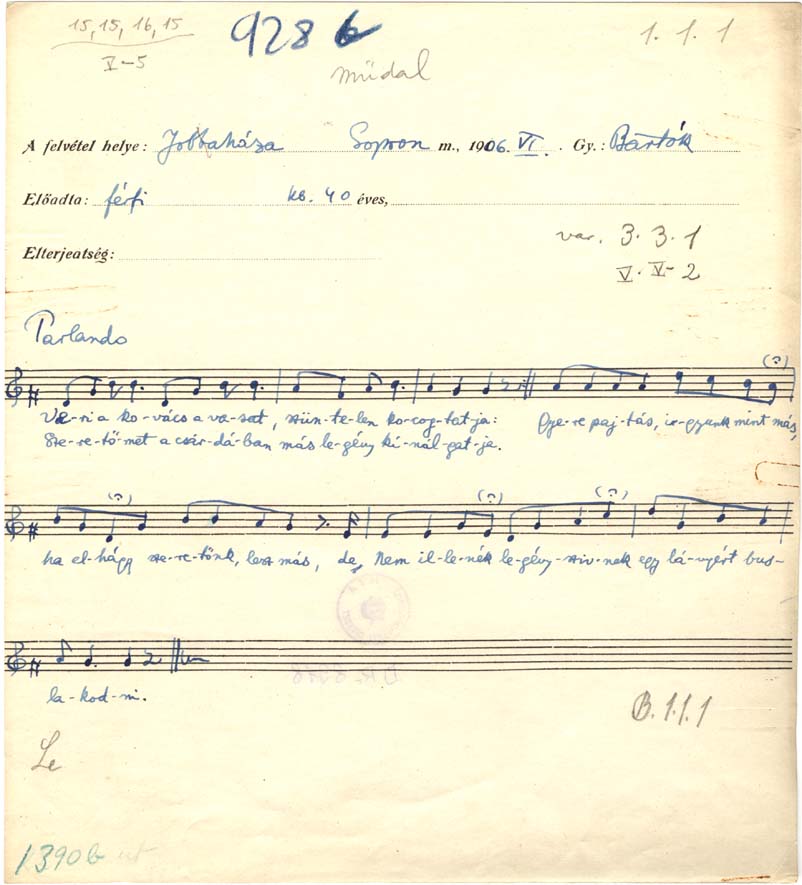 15, 15, 16, 15
V-5
928 b
1. 1. 1
műdal
A felvétel helye: Jobbaháza Sopron m., 1906. VI. Gy.: Bartók
Előadta: férfi kb. 40 éves,
Elterjeatség:
var. 3. 3. 1
V. V- 2
Parlando
Ve-ri a ko-vács a va-sat, szün-te-len ko-cog-tat-ja: Gye-re paj-tás, ir-gyunk mint más,
Sze-re-tő-met a csár-dá-ban más le-gény kí-nál-gat-ja.
ha el-hágy sze-re-tőnk, lesz más, de, Nem il-le-nék le-gény-sziv-nek egy lá-nyért bus-
la-kod-ni.
B. 1.1.1
Le
1390b